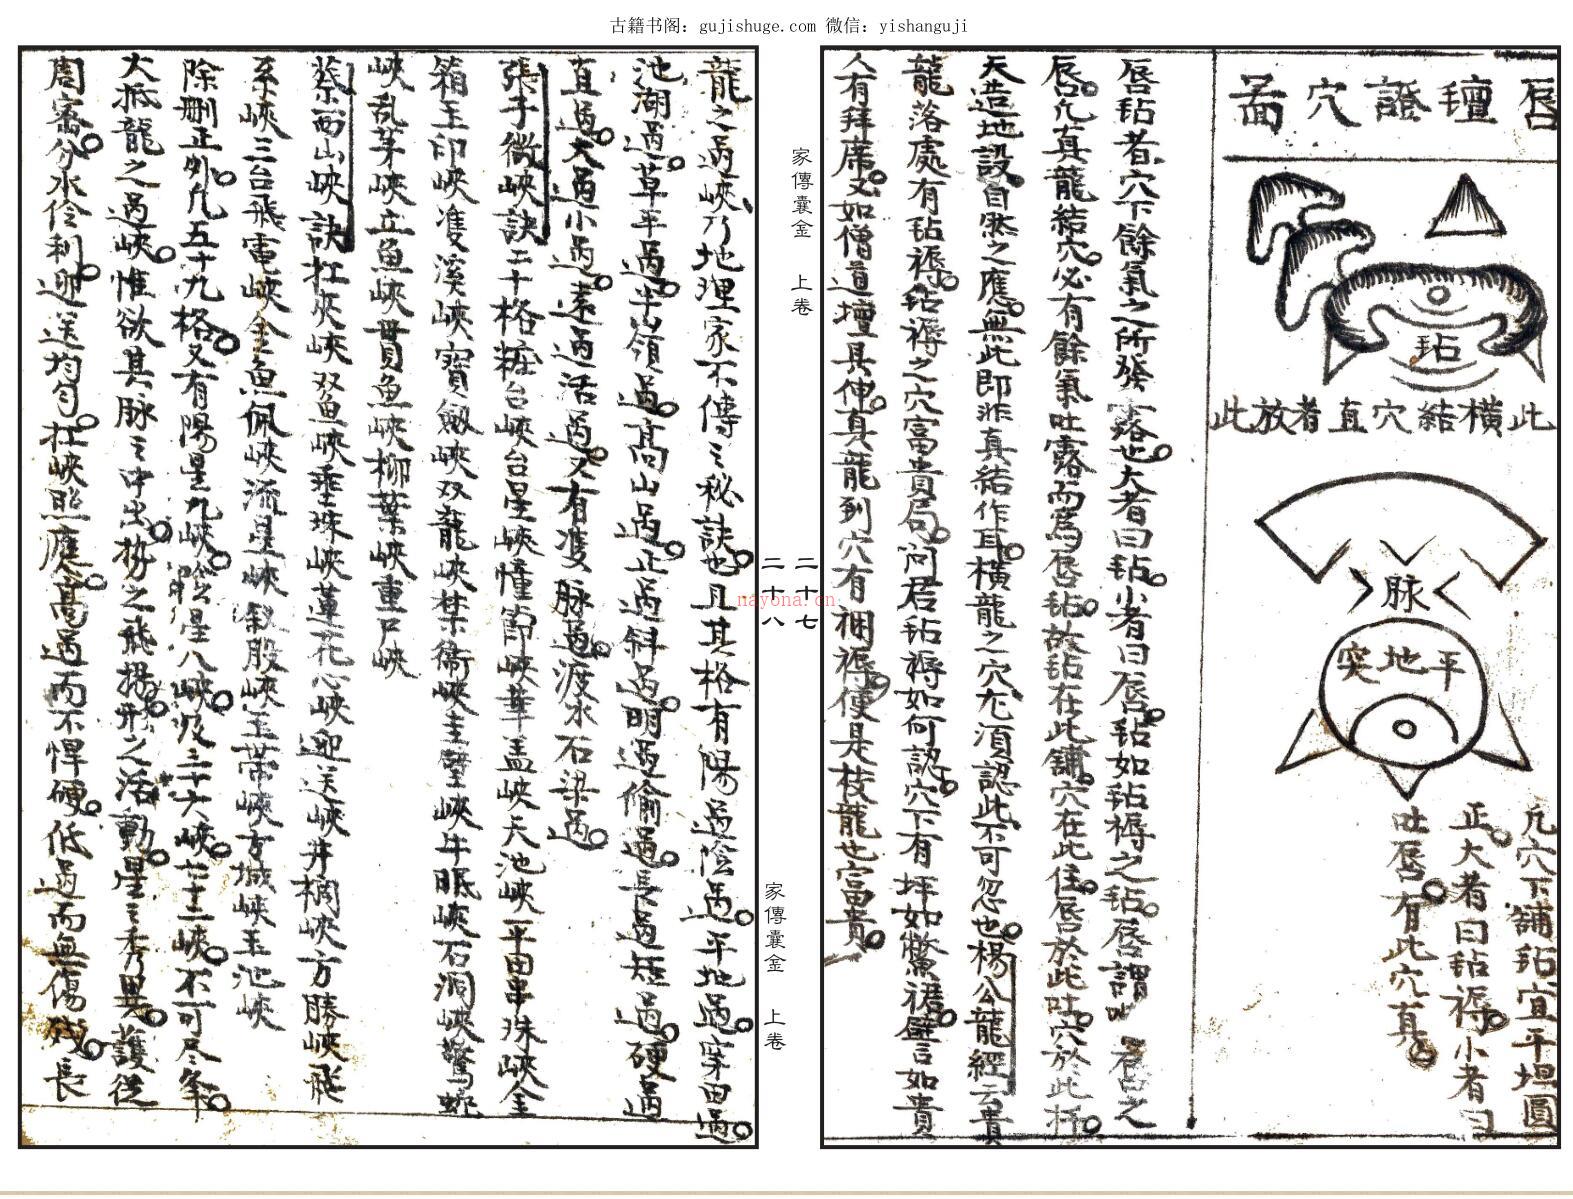 古籍书阁：gujishuge.com 微信：yishanguji
唇氊證穴啚
毡
此橫結穴直者放此
脉
平地突
凢穴下舖毡宜平坦圓
正大者曰毡褥小者曰
吐唇有此穴真
唇毡者穴下餘氣之所發露也大者曰毡小者曰唇毡如毡褥之毡唇謂吐唇之
唇凢真龍結穴必有餘氣吐露而爲唇毡故毡在此舖穴在此住唇於此吐穴於此扦
天造地設自然之應無此即非真結作耳橫龍之穴尤須認此不可忽也楊公龍經云貴
龍落處有毡褥毡褥之穴富貴局問君毡褥如何認穴下有坪如鱉裙譬言如貴
人有拜席又如僧道壇具伸真龍到穴有裀褥便是枝龍也富貴
家傳囊金 上卷
二十七
二十八
家傳囊金 上卷
nayona.cn
龍之過峽乃地理家不傳之秘訣也且其格有陽過陰過平地過穿田過
池湖過草平過半嶺過高山過正過斜過明過偷過長過短過硬過
直過大過小過遠過活過又有雙脉過渡水石梁過
張子微峽訣二十格粧台峽台星峽幢節峽華盖峽天池峽平田串珠峽金
箱玉印峽雙溪峽寶劔峽双龍峽禁衞峽圭璧峽牛眠峽石洞峽驚蛇
峽乱茅峽立魚峽貫魚峽柳葉峽重尸峽
蔡西山峽訣扛夾峽双魚峽垂珠峽蓮花心峽迎送峽井欄峽方勝峽飛
系峽三台飛電峽金魚佩峽流星峽釵股峽玉帶峽方城峽玉池峽
除刪正外凢五十九格又有陽星九峽隂星八峽及三十六峽七十二峽不可尽举
大抵龍之過峽惟欲其脉之中出势之飛揚形之活動星之秀異護從
周宻分水伶利迎送均匀扛峽照應高過而不悍硬低過而無傷殘長